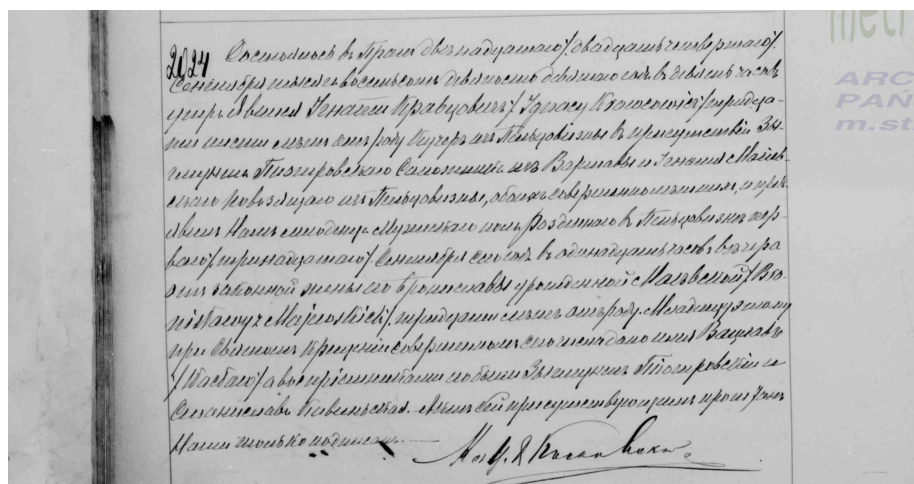 2024
Состоялось в Праге двѣнадцатаго/двадцать четвертаго/
Сентября тысяча восемьсотъ девяносто девятаго года въ девять часовъ
утра. Явился Игнатій Кравцовичъ /Ignacy Krawcowicz/ тридцати
лѣтъ отъ роду Кучеръ изъ Пельцовизны въ присутствіи Зы-
гмунта Піотровскаго Сапожника изъ Варшавы и Игнатія
изъ Пельцовизны, обоихъ совершеннолѣтнихъ, и предъ-
явилъ Намъ младенца Мужескаго пола рожденнаго въ Пельцовизнѣ пер-
ваго/тринадцатаго/ Сентября сего года въ одинадцать часовъ вечера
отъ законной жены его Брониславы урожденной Маевской /Bro-
nisławy z Majewskich/ тридцати лѣтъ отъ роду. Младенцу этому
при Святомъ Крещеніи совершенномъ сего числа дано имя Вацлавъ
/Wacław/ а воспріемниками его были Зыгмунтъ Піотровскій и
Станислава. Актъ сей присутствующимъ прочитанъ
Нами только подписанъ.
ARC
PAŃ
m.st